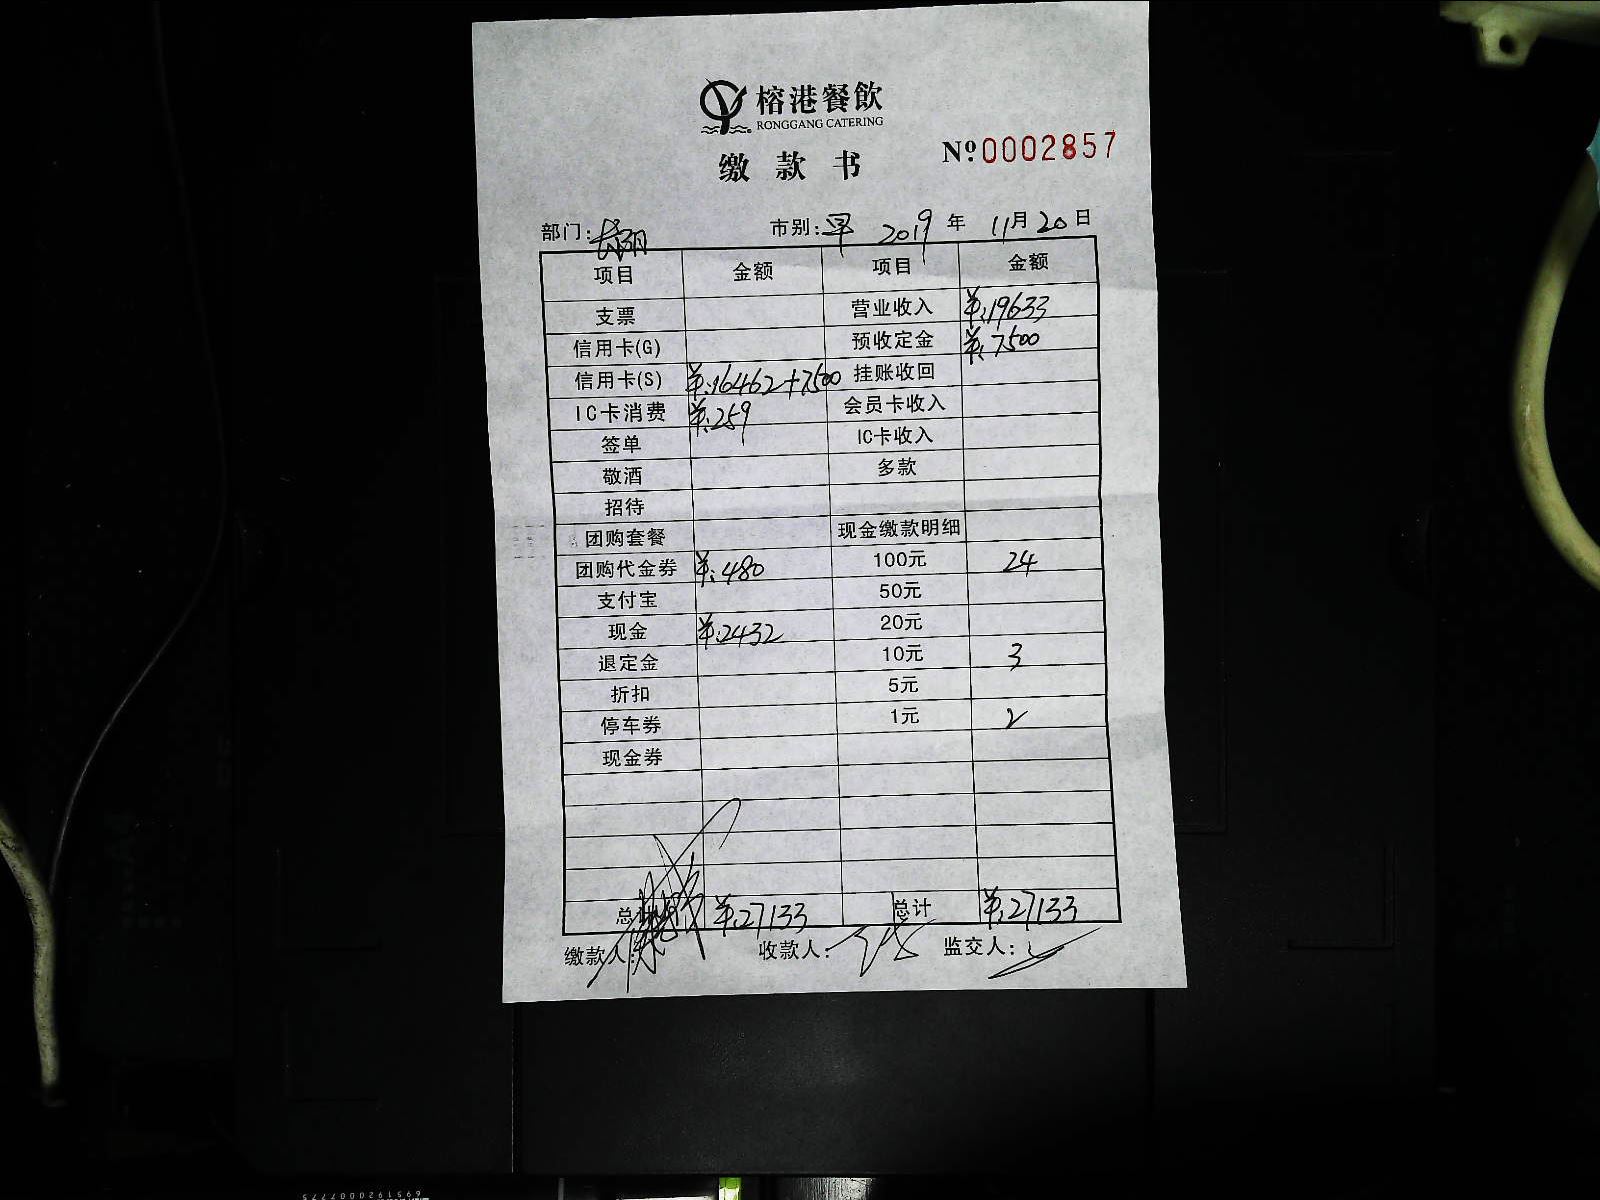 榕港餐飲
RONGGANG CATERING
缴款书
Nº0002857
部门: 市别:早 2019年11月20日
项目 金额 项目 金额
支票 营业收入 ¥:19633
信用卡(G) 预收定金 ¥:7500
信用卡(S) ¥:16462+7500 挂账收回
IC卡消费 ¥:259 会员卡收入
签单 IC卡收入
敬酒 多款
招待
团购套餐 现金缴款明细
团购代金券 ¥:480 100元 24
支付宝 50元
现金 ¥:2432 20元
退定金 10元 3
折扣 5元
停车券 1元 2
现金券
总计 ¥:27133 总计 ¥:27133
缴款人: 收款人: 监交人: